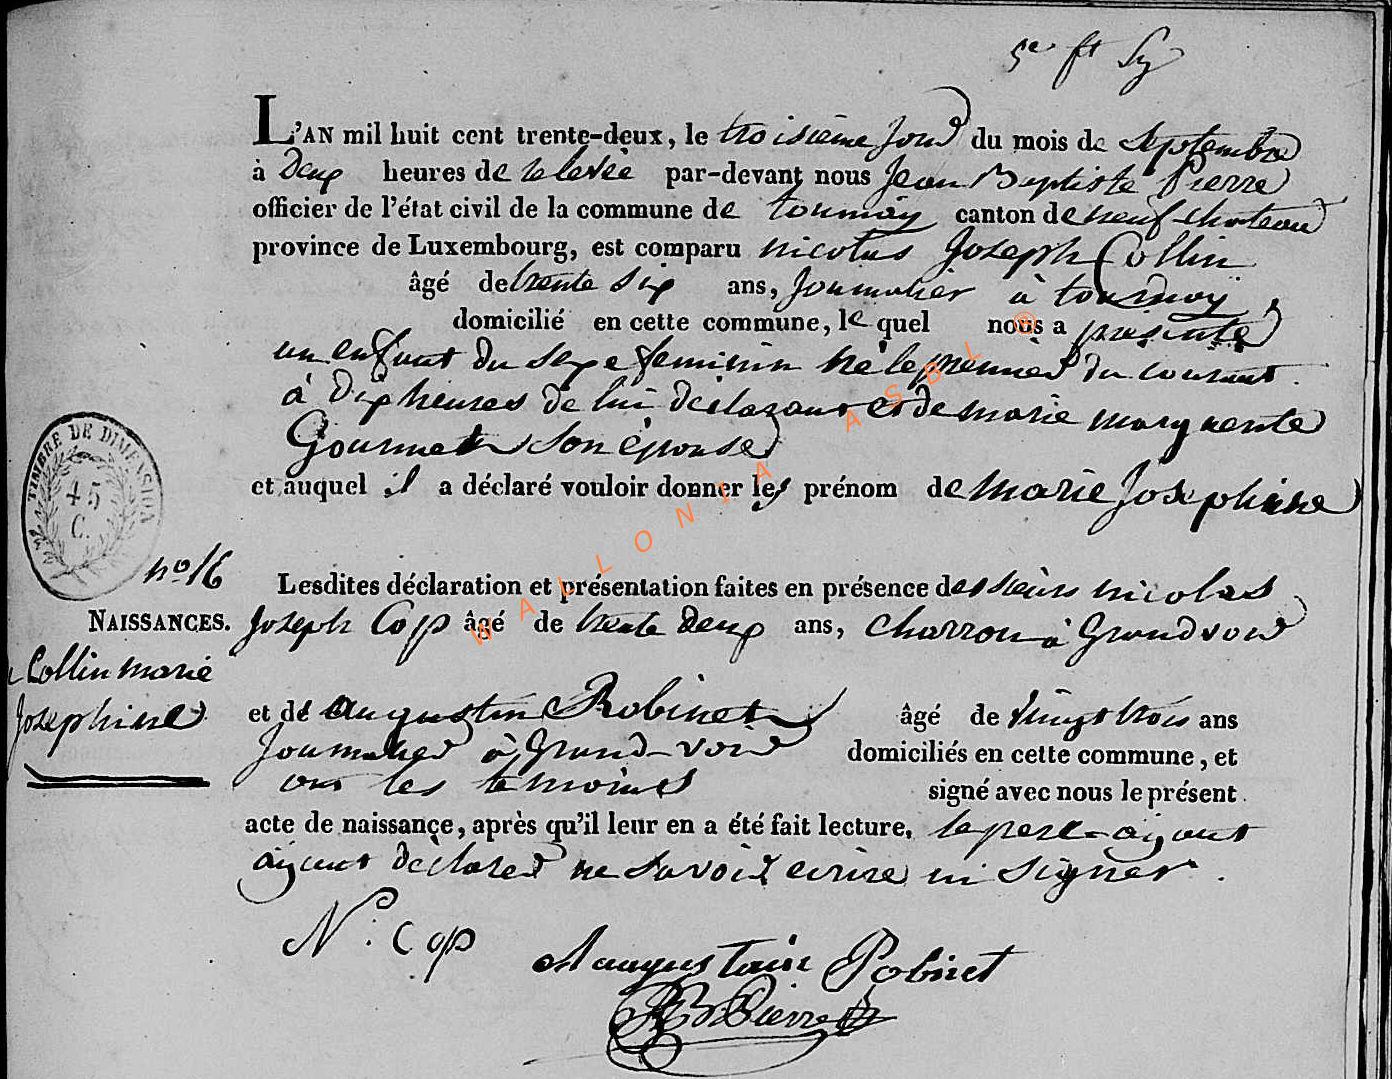 5e ft Sy
L'AN mil huit cent trente-deux, le troisième jour du mois de Septembre
à Deux heures de relevée par-devant nous Jean Baptiste Pierre
officier de l'état civil de la commune de tournay canton de neufchateau
province de Luxembourg, est comparu nicolas Joseph Collin
âgé de trente Six ans, Journalier à tournay,
domicilié en cette commune, le quel nous a présenté
un enfant du sexe feminin né le premier du courant
à Dix heures de lui déclarant et de marie marguerite
Gourmet son épouse
et auquel il a déclaré vouloir donner les prénom de marie Josephine
TIMBRE DE DIMENSION
45
C.
no 16
Lesdites déclaration et présentation faites en présence des sieurs nicolas
NAISSANCES.
Joseph Cop âgé de trente Deux ans, charron à Grandvoir
Collin marie
Josephine
et de augustin Robinet âgé de vingt trois ans
Journalier à Grand-voir domiciliés en cette commune, et
ont les temoins signé avec nous le présent
acte de naissance, après qu'il leur en a été fait lecture, le pere aiyant
aiyant déclarer ne savoir ecrire ni signer.
N. Cop
Aaugustain Robinet
JB Pierre
WALLONIA ASBL ®